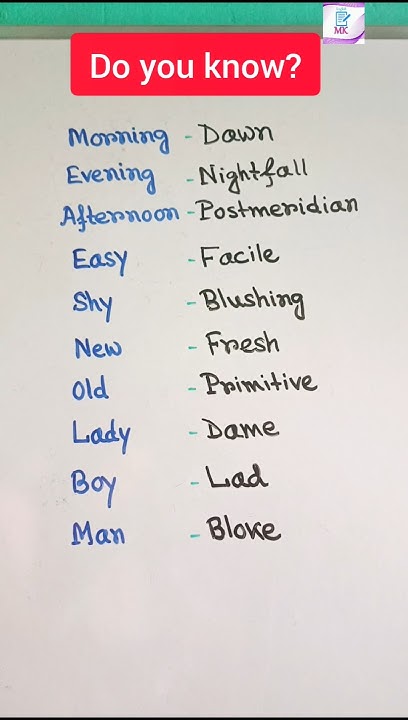 MK
Do you know?
Morning - Dawn
Evening - Nightfall
Afternoon - Postmeridian
Easy - Facile
Shy - Blushing
New - Fresh
Old - Primitive
Lady - Dame
Boy - Lad
Man - Bloke